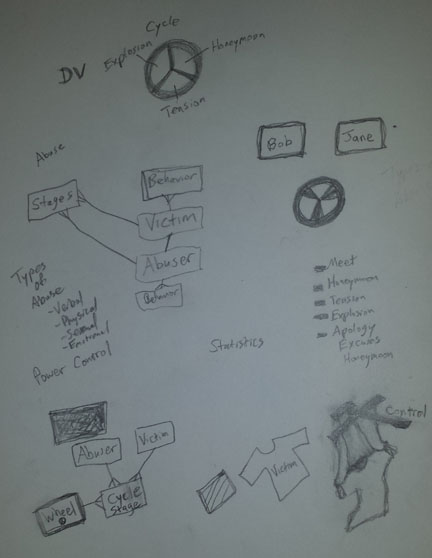 Cycle
DV
Explosion
Honeymoon
Tension
Bob
Jane
Abuse
Behavior
Stages
Victim
Abuser
Behavior
Types
of
Abuse
-Verbal
-Physical
-Sexual
-Emotional
Power Control
Statistics
Meet
Honeymoon
Tension
Explosion
Apology
Excuses
Honeymoon
Abuser
Victim
Cycle
Stage
Wheel
Victim
Control